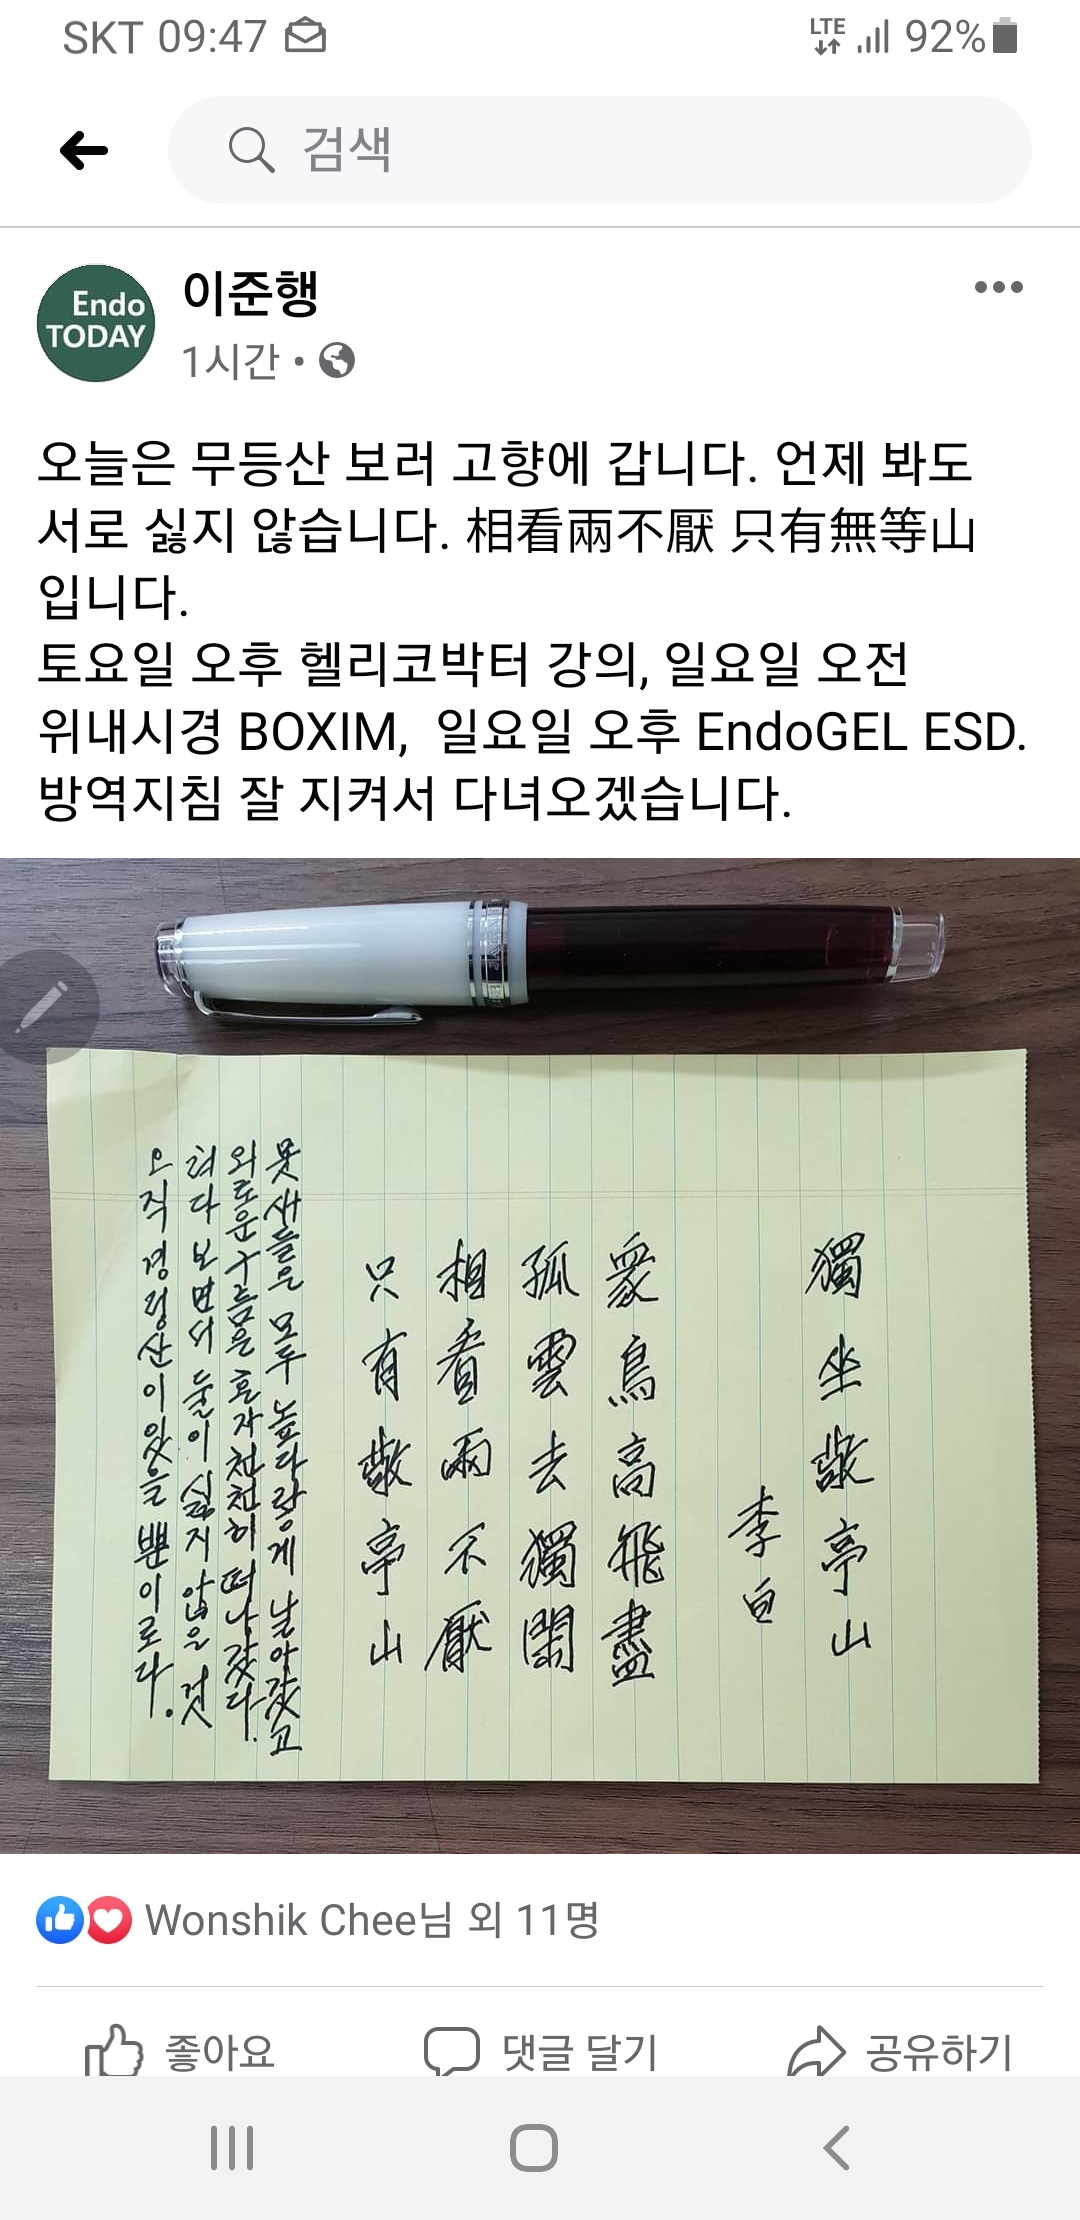 SKT 09:47
LTE 92%
검색
Endo
TODAY
이준행
1시간
오늘은 무등산 보러 고향에 갑니다. 언제 봐도
서로 싫지 않습니다. 相看兩不厭 只有無等山
입니다.
토요일 오후 헬리코박터 강의, 일요일 오전
위내시경 BOXIM, 일요일 오후 EndoGEL ESD.
방역지침 잘 지켜서 다녀오겠습니다.
獨坐敬亭山
李白
衆鳥高飛盡
孤雲去獨閑
相看兩不厭
只有敬亭山
뭇새들은 모두 높다랗게 날아갔고
외로운 구름은 혼자 천천히 떠나갔다.
쳐다 보면서 둘이 싫지 않은 것
오직 경정산이 있을 뿐이로다.
Wonshik Chee님 외 11명
좋아요
댓글 달기
공유하기